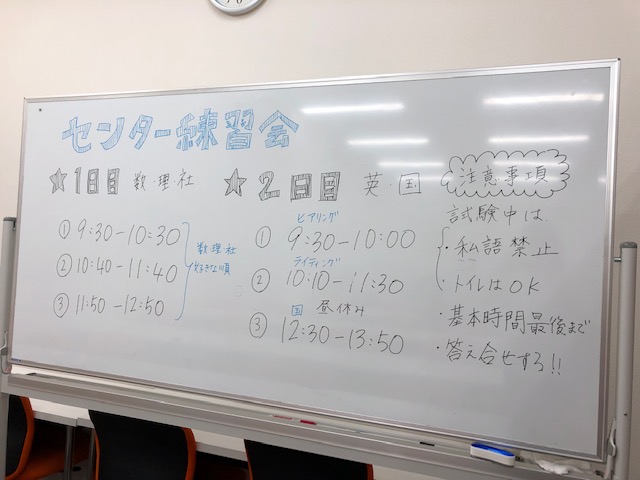 センター練習会
★1日目 数・理・社
①9:30-10:30
②10:40-11:40
③11:50-12:50
数理社
好きな順
★2日目 英・国
ヒアリング
①9:30-10:00
ライティング
②10:10-11:30
国 昼休み
③12:30-13:50
注意事項
試験中は
・私語禁止
・トイレはOK
・基本時間最後まで
・答え合せする!!